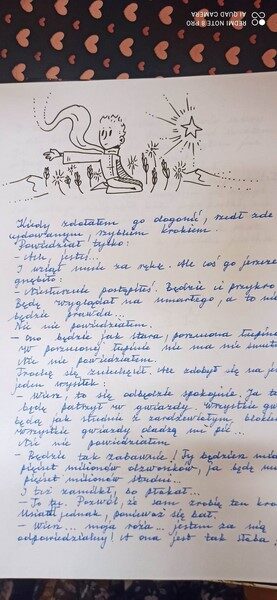 REDMI NOTE 8 PRO
AI QUAD CAMERA
Kiedy zdołałem go dogonić, szedł zde
cydowanym, szybkim krokiem.
Powiedział tylko:
- Ach, jesteś...
I wziął mnie za rękę. Ale coś go jeszcze
gnębiło:
- Niesłusznie postąpiłeś. Będzie ci przykro
Będę wyglądał na umarłego, a to nie
będzie prawdą...
Nic nie powiedziałem.
- ono będzie jak stara, porzucona łupina
W porzuconej łupinie nie ma nic smutn
Nic nie powiedziałem.
Trochę się zniechęcił. Ale zdobył się na je
jeden wysiłek:
- Wiesz, to się odbędzie spokojnie. Ja te
będę patrzył w gwiazdy. Wszystkie gw
będą jak studnie z zardzewiałym blokie
Wszystkie gwiazdy dadzą mi pić...
Nic nie powiedziałem
- Będzie tak zabawnie! Ty będziesz miał
pięćset milionów dzwonków, ja będę mi
pięćset milionów studni...
I też zamilkł, bo płakał...
- To tu. Pozwól, że sam zrobię ten kro
Usiadł jednak, ponieważ się bał.
- Wiesz... moja róża... jestem za nią
odpowiedzialny! A ona jest tak słaba,